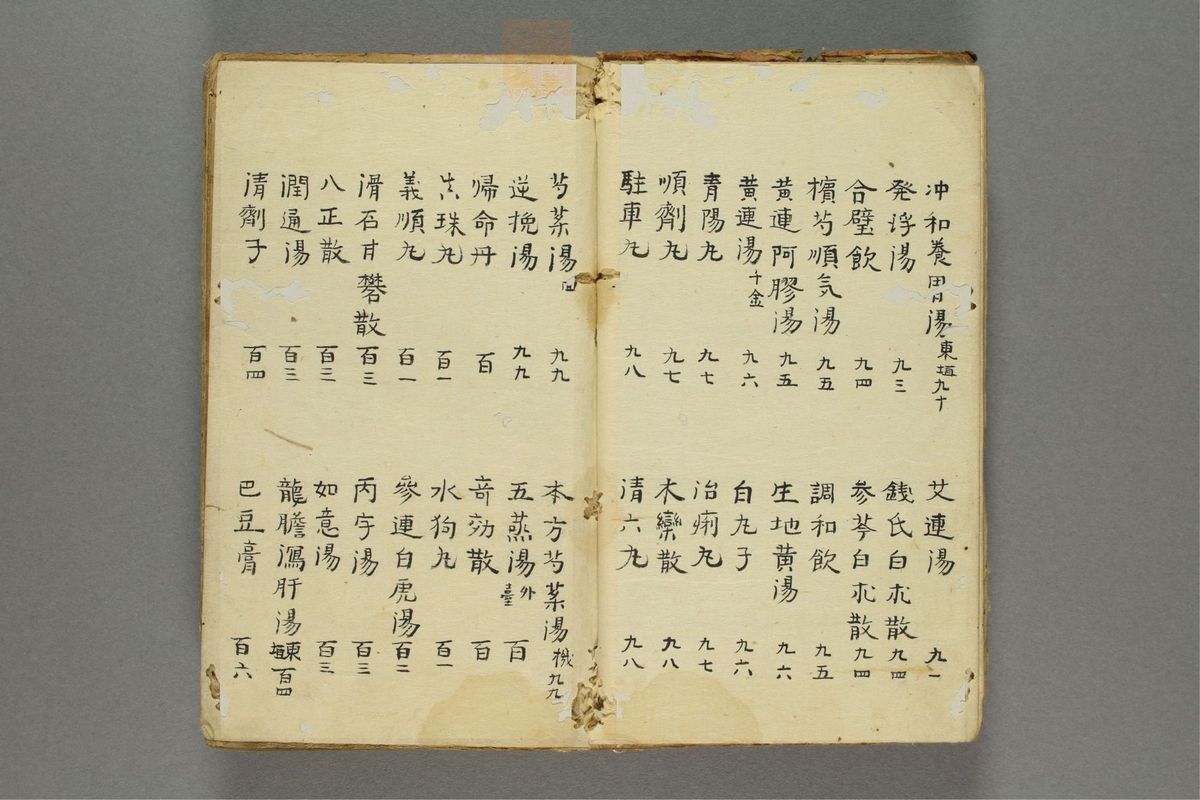 冲和養胃湯 東垣 九十 艾連湯 九一
発浮湯 九三 銭氏白朮散 九四
合璧飲 九四 参苓白朮散 九四
檳芍順気湯 九五 調和飲 九五
黄連阿膠湯 九五 生地黄湯 九六
黄連湯 千金 九六 白丸子 九六
青陽丸 九七 治痢丸 九七
順劑丸 九七 木欒散 九八
駐車丸 九八 清六丸 九八
芍薬湯 回 九九 本方芍薬湯 機 九九
逆挽湯 九九 五燕湯 外臺 百
帰命丹 百 奇効散 百
真珠丸 百一 水狗丸 百一
義順丸 百一 參連白虎湯 百二
滑石甘礬散 百三 丙字湯 百三
八正散 百三 如意湯 百三
潤通湯 百三 龍膽瀉肝湯 東垣 百四
清劑子 百四 巴豆膏 百六